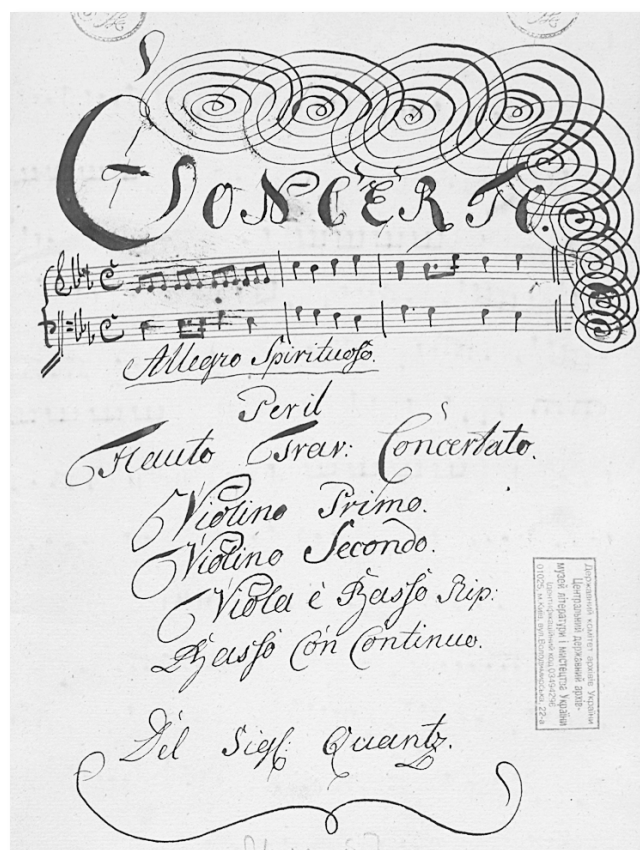 CONCERTO.
Allegro Spirituoso.
Per il
Flauto Trav: Concertato.
Violino Primo.
Violino Secondo.
Viola è Basso Rip:
Basso Con Continuo.
Del Sigl: Quantz.
Державний комітет архівів України
Центральний державний архів-
музей літератури і мистецтва України
Ідентифікаційний код 03494296
01025, м.Київ, вул.Володимирська, 22-а